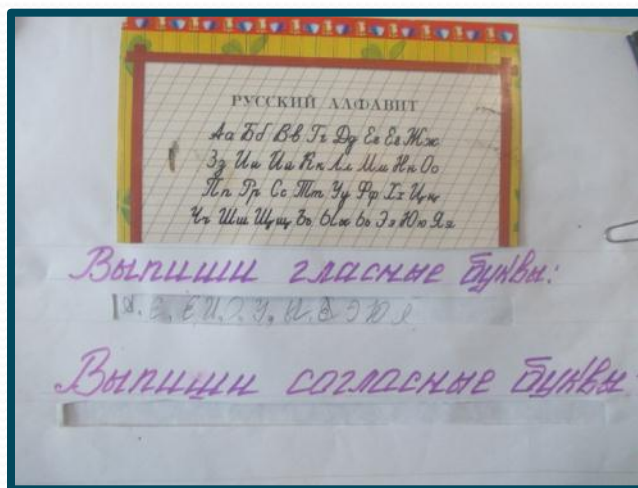 РУССКИЙ АЛФАВИТ
Аа Бб Вв Гг Дд Ее Ёё Жж
Зз Ии Йй Кк Лл Мм Нн Оо
Пп Рр Сс Тт Уу Фф Хх Цц
Чч Шш Щщ Ъъ Ыы Ьь Ээ Юю Яя
Выпиши гласные буквы:
Выпиши согласные буквы: